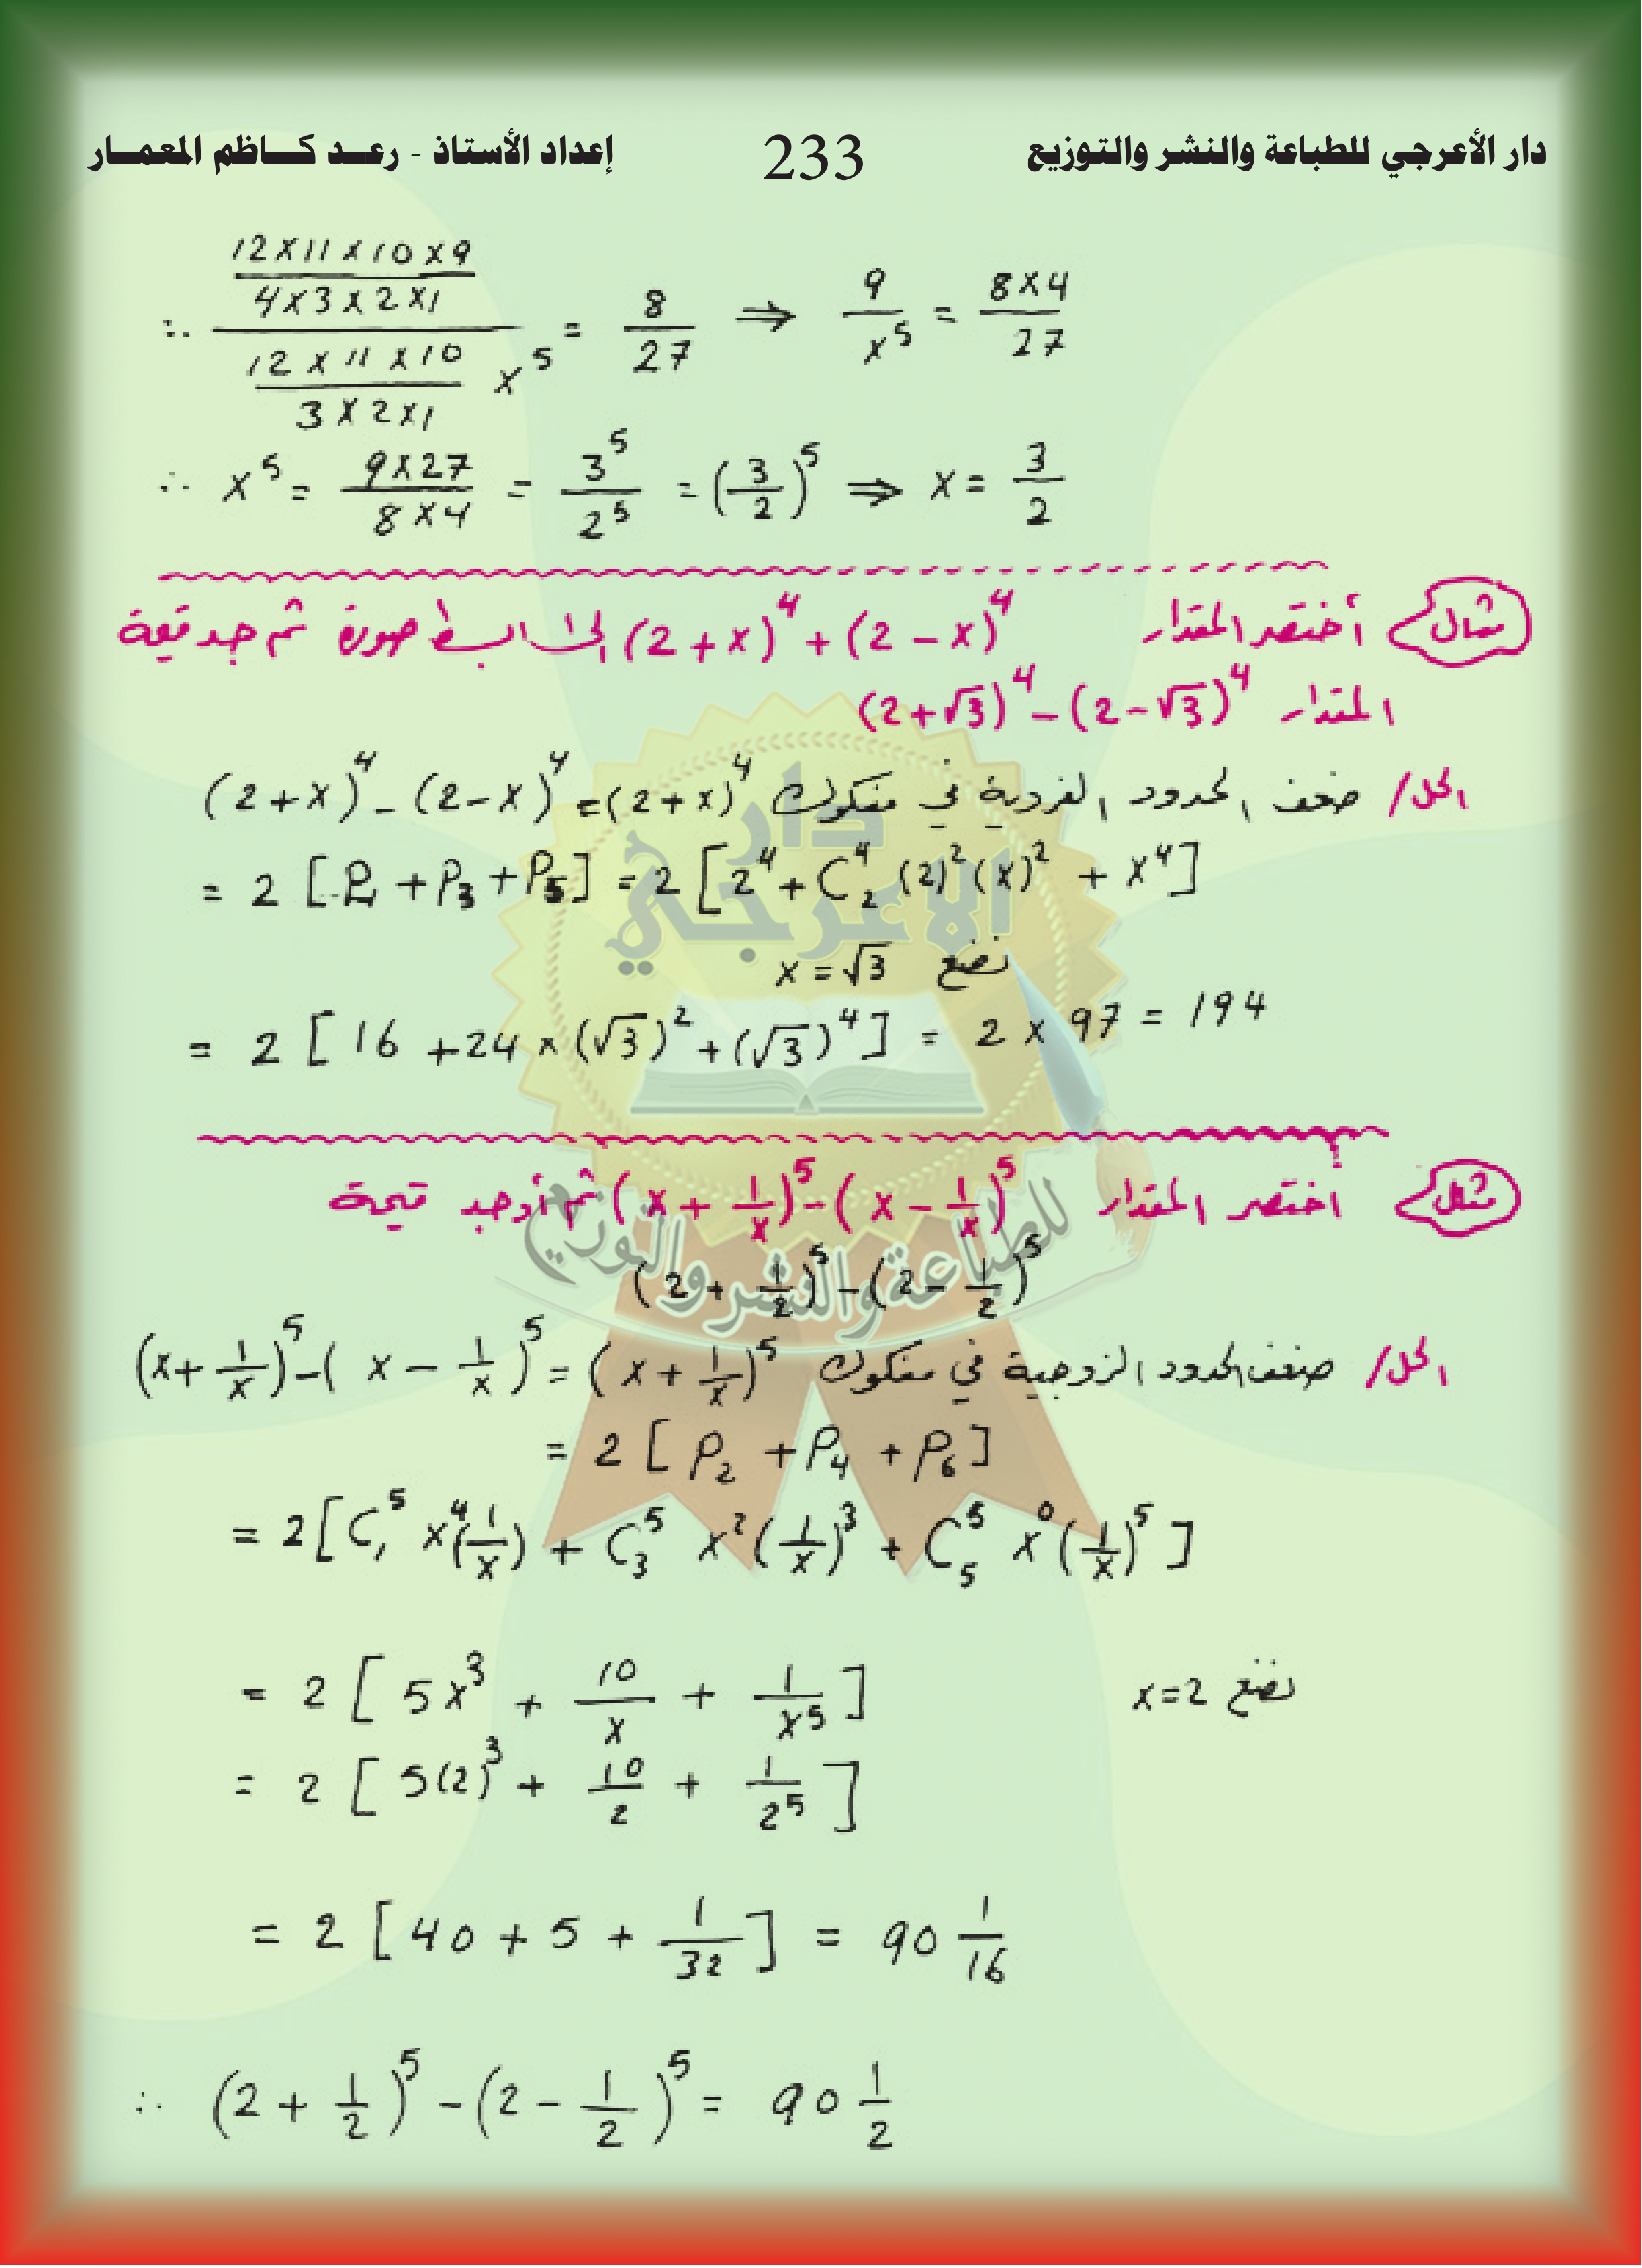 دار الأعرجي للطباعة والنشر والتوزيع 233 إعداد الأستاذ - رعد كاظم المعمار
∴ ((12×11×10×9)/(4×3×2×1)) / ((12×11×10)/(3×2×1) x⁵) = 8/27 ⇒ 9/x⁵ = (8×4)/27
∴ x⁵ = (9×27)/(8×4) = 3⁵/2⁵ = (3/2)⁵ ⇒ x = 3/2
مثال أختصر المقدار (2+x)⁴ + (2-x)⁴ إلى ابسط صورة ثم جد قيمة
المقدار (2+√3)⁴ - (2-√3)⁴
الحل/ ضعف الحدود الفردية في مفكوك (2+x)⁴ = (2+x)⁴ - (2-x)⁴
= 2 [P₁ + P₃ + P₅] = 2 [2⁴ + C⁴₂ (2)² (x)² + x⁴]
نضع x = √3
= 2 [16 + 24 × (√3)² + (√3)⁴] = 2 × 97 = 194
مثال اختصر المقدار (x + 1/x)⁵ - (x - 1/x)⁵ ثم أوجد قيمة
(2 + 1/2)⁵ - (2 - 1/2)⁵
الحل/ ضعف الحدود الزوجية في مفكوك (x + 1/x)⁵ = (x + 1/x)⁵ - (x - 1/x)⁵
= 2 [P₂ + P₄ + P₆]
= 2 [C₁⁵ x⁴ (1/x) + C₃⁵ x² (1/x)³ + C₅⁵ x⁰ (1/x)⁵]
= 2 [5x³ + 10/x + 1/x⁵] نضع x=2
= 2 [5(2)³ + 10/2 + 1/2⁵]
= 2 [40 + 5 + 1/32] = 90 1/16
∴ (2 + 1/2)⁵ - (2 - 1/2)⁵ = 90 1/2
دار
الاعرجي
للطباعة والنشر والتوزيع